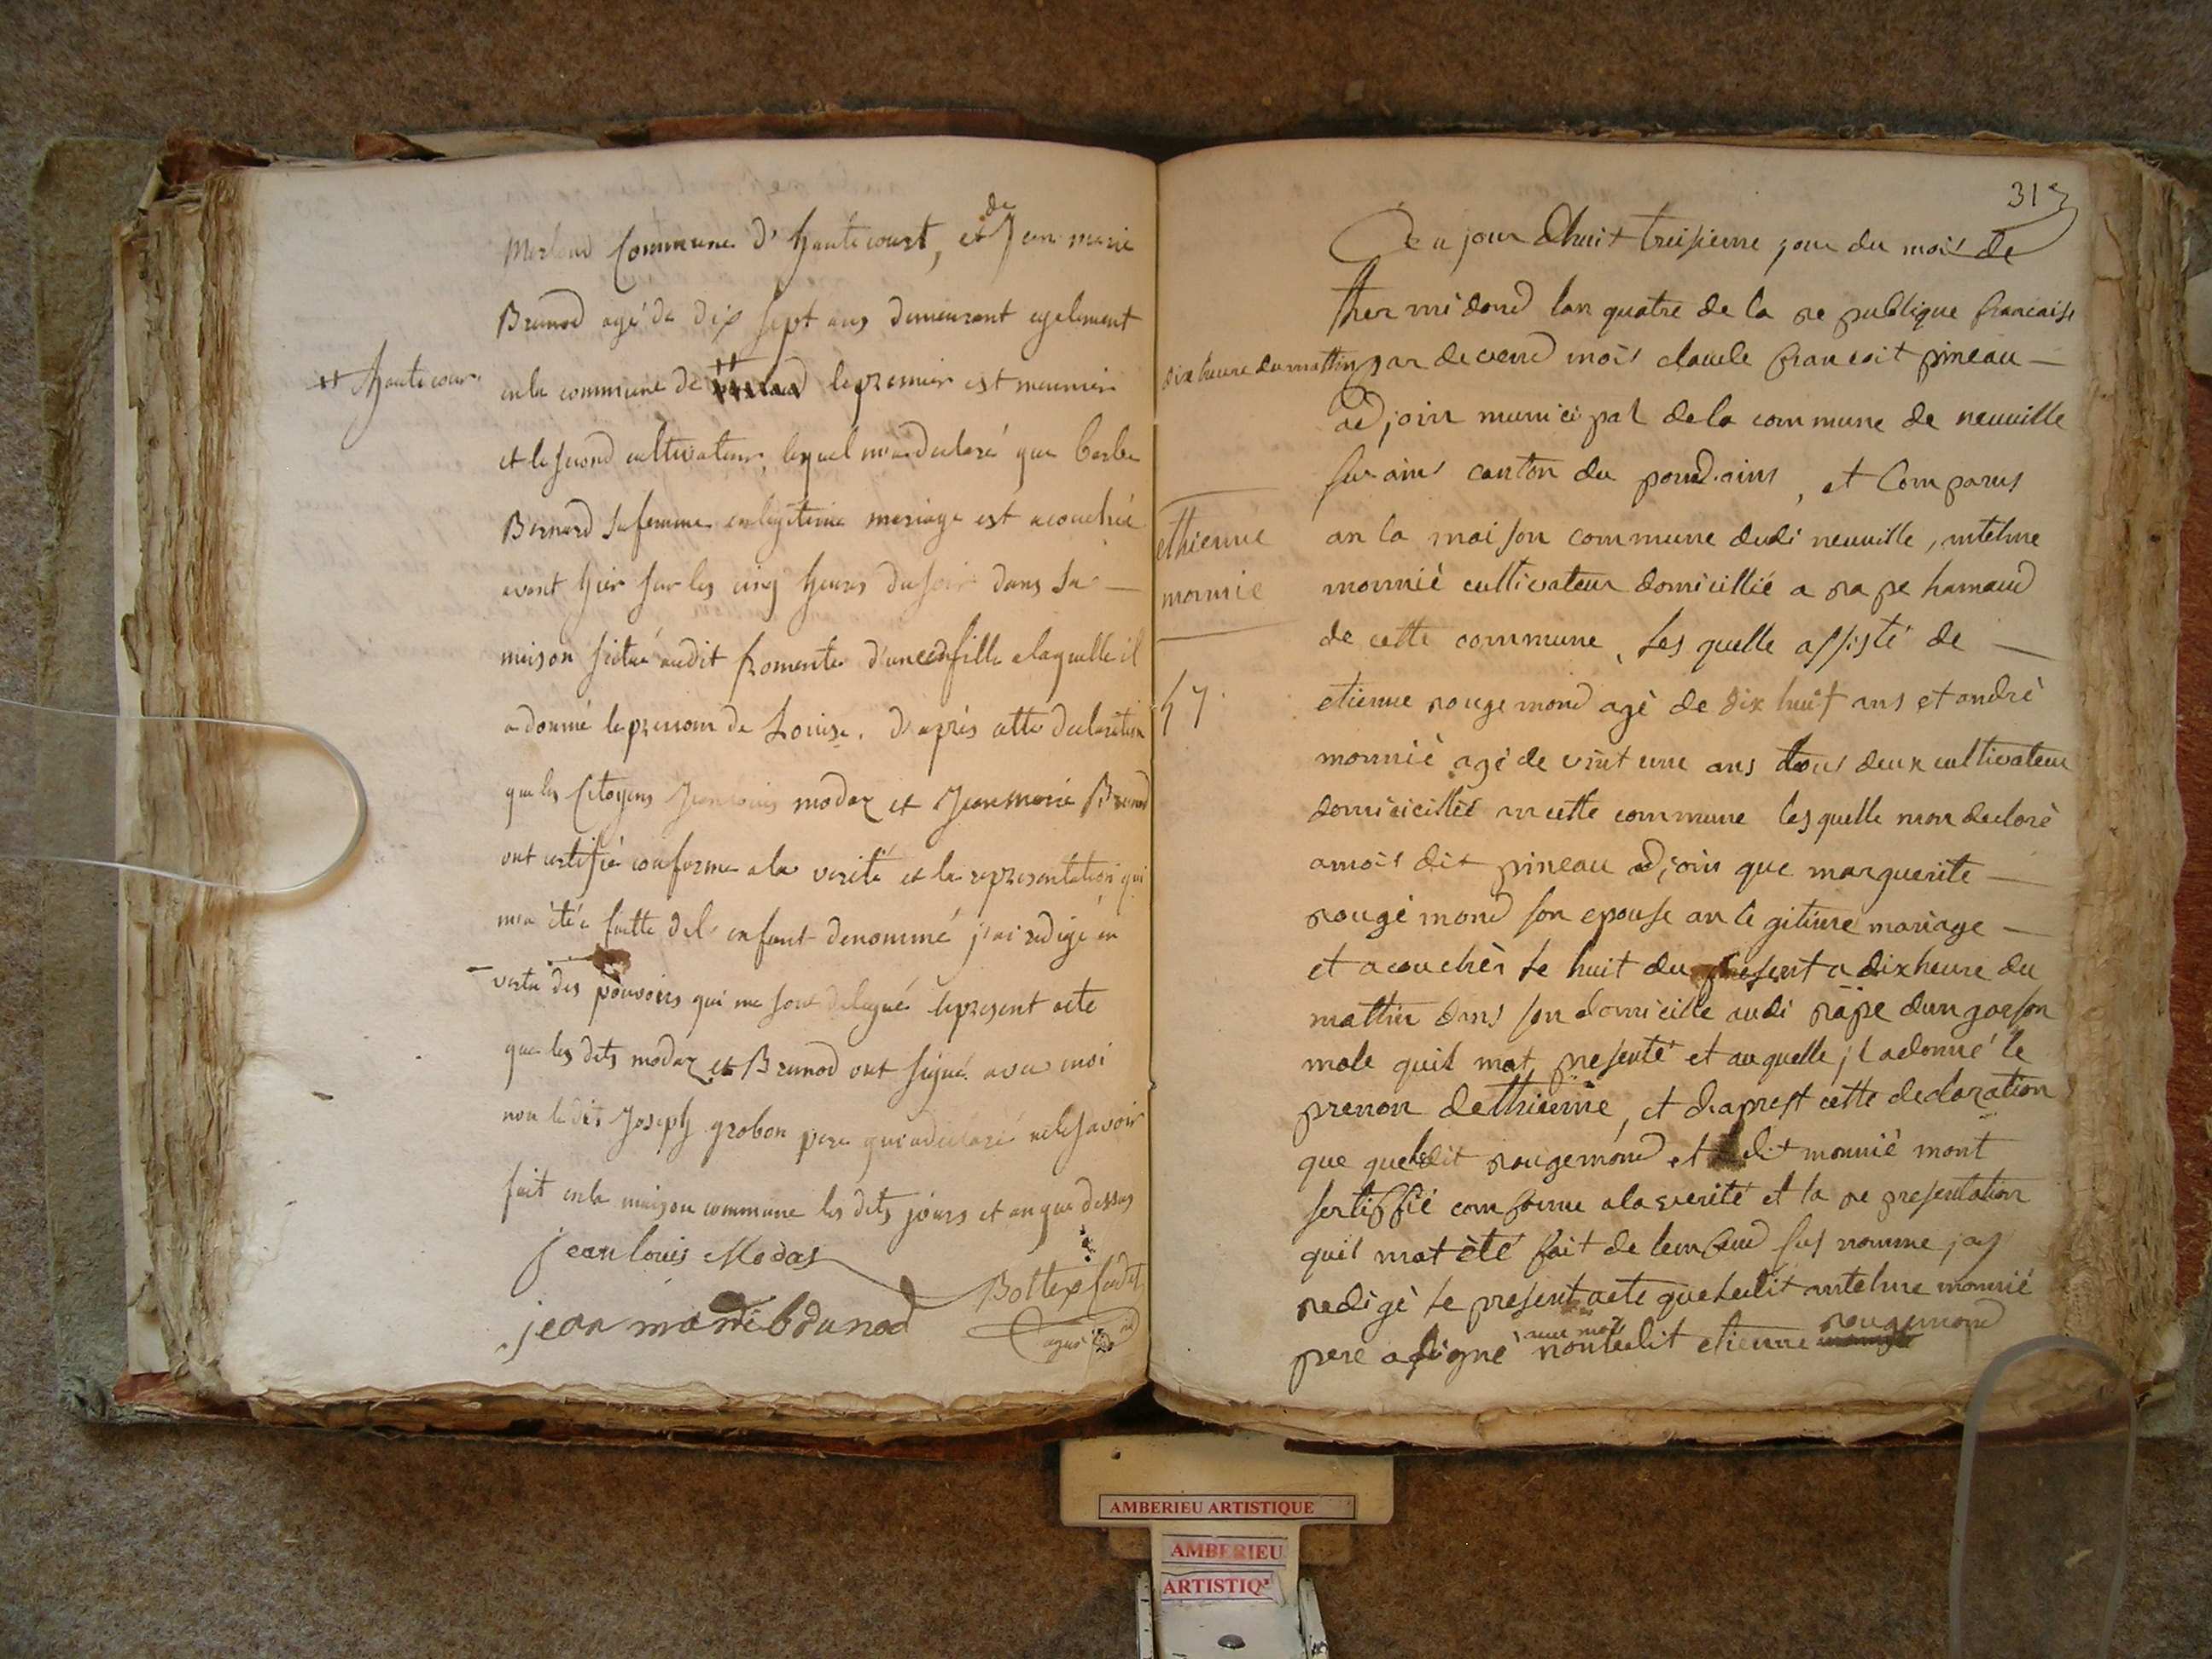 merland Commune d' hautecourt, et de Jean marie
Brunod agé de dix sept ans demeurant egalement
++ hautecour
en la commune de le premier est meunier
et le second cultivateur, lequel m'a declaré que
Bernard sa femme en legitime mariage est acouchée
avant hier sur les cinq heures du soir dans sa
maison scitué audit fromente d'une fille a laquelle il
a donné le prenom de Louise. d'après cette declaration
que les Citoyens Jean Louis modaz et Jean marie Brunod
ont certifié conforme a la verité et la representation qui
m'a été faitte del' enfant denommé j'ai redigé en
vertu des pouvoirs qui me sont delegué le present acte
que les dits modaz et Brunod ont signé avec moi
non le dit Joseph grobon pere qui a declaré ne le savoir
fait en la maison commune les dits jours et an que dessus
jean louis Modas
Bottex
jean marie bdunod
313
Ce u jour dhuit treisieme jour du mois de
ther mi dond lan quatre de la re publique francaise
dix heure du mattin par devend mois claude francoit pineau
ad join munici pal de la com mune de neuville
sur ains canton du pond.ains, et Com parus
ethienne
monnie
an la mai son commune dudi neuville, antelme
monnié cultivateur domicillié a rape hamaud
de cette commune, Les quelle assisté de
57.
etienne rouge mond agè de dix huit ans et andrè
monniè agé de vint une ans tous deux cultivateur
domicicillié an cette commune les quelle mon declarè
a mois dit pineau adjoin que marguerite
rougè mond son epouse an le gitime mariage
et acouchèr le huit du present a dix heure du
mattin dans son domicille audi rape dun garson
male quil mat presenté et au quelle, il a donné le
prenon dethienne, et dapres cette declaration
que que ledit rougemond et ledit monniè mont
sertiffié com forme a la verité et la re presentation
quil mat été fait de lenfend sus nomme jay
redigè le present acte que ledit antelme monnié
pere a signe avec moy non ledit etienne rougemond
AMBERIEU ARTISTIQUE
AMBERIEU
ARTISTIQ